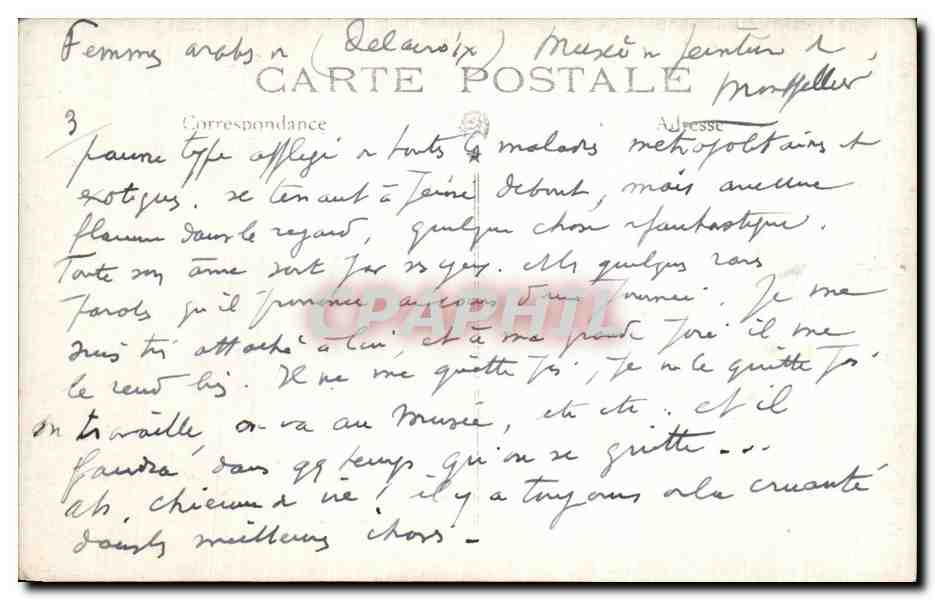 Femmes arabes (Delacroix) Musée peinture de
CARTE POSTALE
Montpellier
3
Correspondance Adresse
pauvre type affligé de toutes les maladies métropolitaines et
exotiques. se tenant à peine debout, mais avec une
flamme dans le regard, quelque chose fantastique.
Toute son âme sort par ses yeux. quelques rares
paroles qu'il prononce au cours d'une journée. Je me
suis très attaché à lui, et à ma grande joie il me
le rend bien. Il ne me quitte pas, je ne le quitte pas
on travaille, on va au Musée, etc etc. et il
faudra, dans qq temps qu'on se quitte...
ah, chienne de vie! il y a toujours de la cruauté
dans les meilleures choses -
CPAPHIL